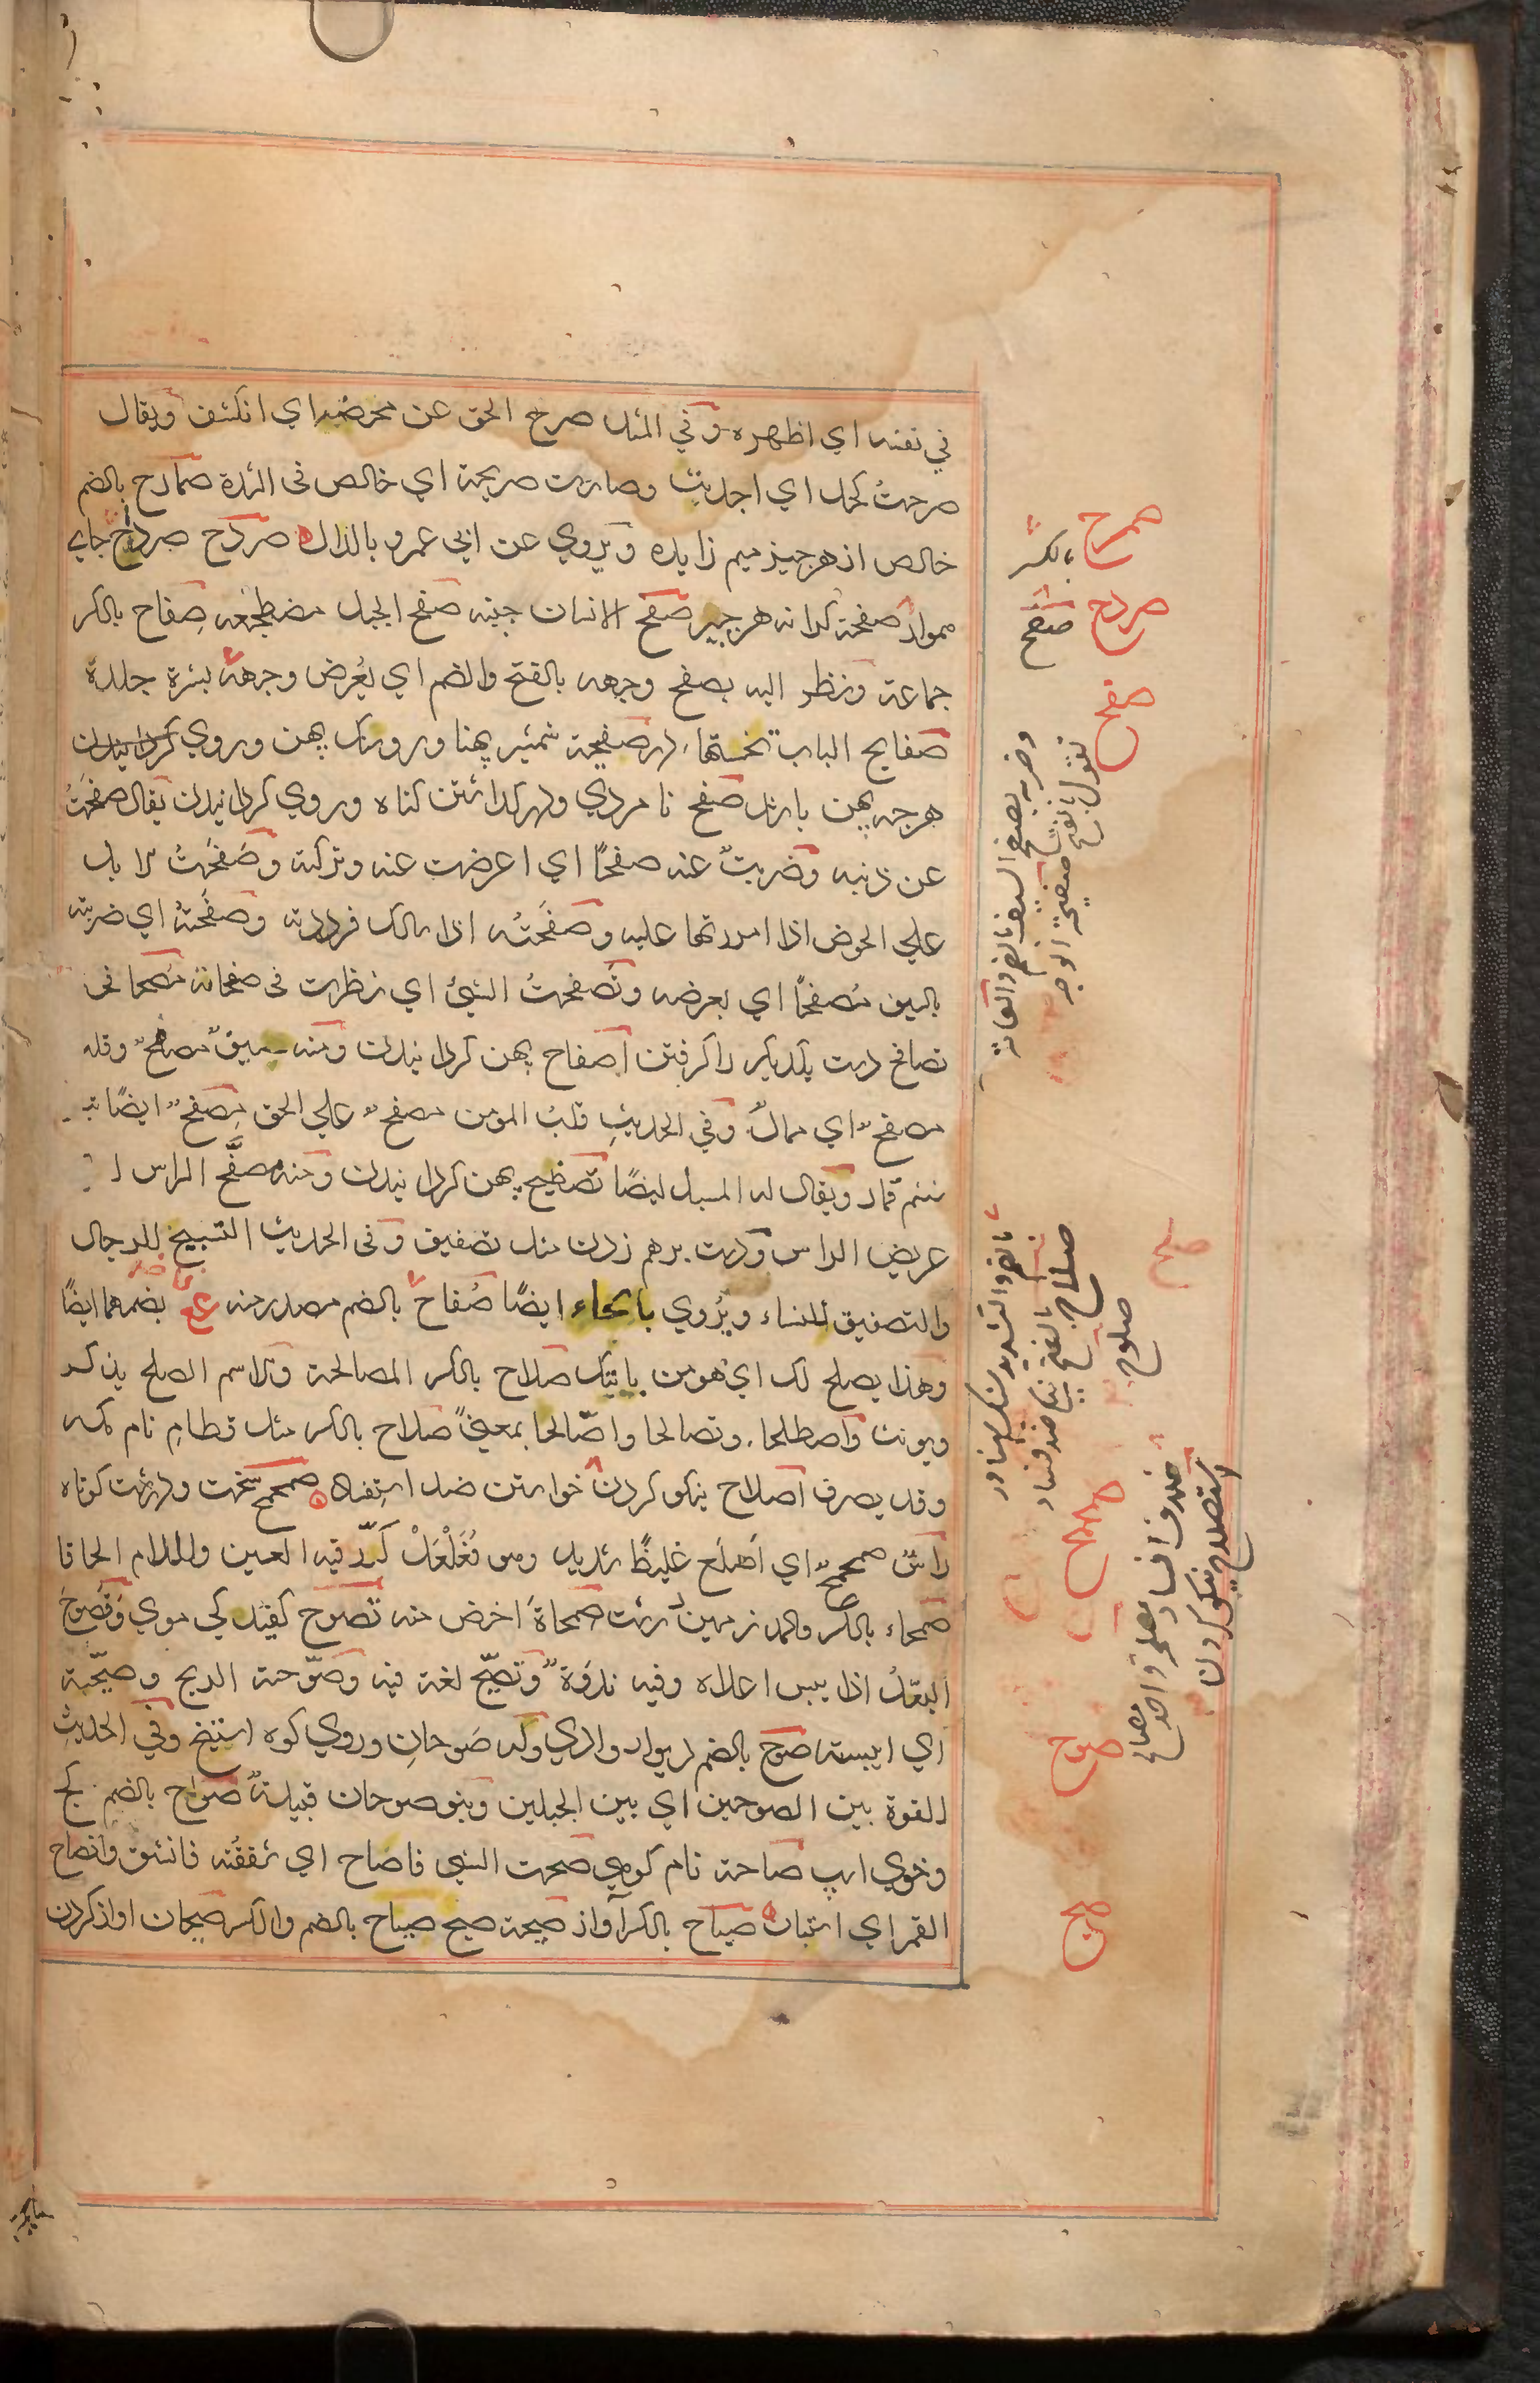 في نفسه اي اظهره وفي المثل صرح الحق عن محضه اي انكشف ويقال
صرحت كحل اي اجدبت وصارت صريحة اي خالص في الشدة صمادح بالضم
خالص از هر چيز ميم زايده ويروي عن ابي عمرو بالذال صردح صرداح جاي
هموار صفحة كرانه هر چيز صفح الانسان جنبه صفح الجبل مضطجعه صفاح بالكسر
جماعة ونظر اليه بصفح وجهه بالفتح والضم اي بعرض وجهه بشرة جلده
صفايح الباب تختها صفيحة شمشير پهنا ور وسنك پهن وروي كردانيدن
هرچه پهن باشد صفح نامردي ودر كذاشتن كناه وروي كردانيدن يقال صفحت
عن ذنبه وضربت عنه صفحًا اي اعرضت عنه وتركته وصفحت الابل
علي الحوض اذا امررتها عليه وصفحته اذا سالك فرددته وصفحته اي ضربته
بالسيف مصفحًا اي بعرضه وتصفحت الشئ اي نظرت في صفحاته مصافحة
تصافح دست يكديكر را كرفتن اصفاح پهن كردانيدن ومنه سيف مصفح وقلب
مصفح اي ممال وفي الحديث قلب المؤمن مصفح علي الحق مصفح ايضًا
ششم قمار ويقال له المسبل ايضًا تصفيح پهن كردانيدن ومنه مصفح الراس
عريض الراس ودست برهم زدن مثل تصفيق وفي الحديث التسبيح للرجال
والتصفيق للنساء ويروي بالحاء ايضًا صفاح بالضم مصدر منه بضمهما ايضًا
وهذا يصلح لك اي هو من بابتك صلاح بالكسر المصالحة والاسم الصلح يذكر
ويونث واصطلحا وتصالحا واصّالحا بمعني صلاح بالكسر مثل قطام نام مكه
وقد يصرف اصلاح نيكو كردن خواستن ضد استفساد صمحمح سخت ودرشت كوتاه
راس صمحمح اي اصلع غليظ شديد وهو فعلعل كرر فيه العين واللام الحاقا
صمحاء بالكسر والمد زمين درشت صمحاة اخص منه تصوح كفيدكي موي وتصوح
البقل اذا يبس اعلاه وفيه ندوة وتصيح لغة فيه وصوحته الريح وصيحته
اي ايبسته صوح بالضم ديوار وادي وله صوحان وروي كوه استيخ وفي الحديث
القوة بين الصوحين اي بين الجبلين وبنو صوحان قبيلة صواح بالضم كج
وخوي اسپ صاحة نام كوهي صحت الشي فانصاح اي شققته فانشق وانصاح
القمر اي استبان صياح بالكسر آواز صيحة صيح صياح بالضم والكسر صيحان اواز كردن
صمرح
بالكسر
صردح
صفح
صفح
تقول بالفتح صفيحة الوجه
وضربه بصفح السيف بالضم
صلح
صلوح
صلاح بالفتح نيكي ضد فساد
بالضم والتشديد سنك پهناور
ضد افساد مصلحة واحد مصالح
استصلاح نيكو كردن
صمح
صوح
صيح